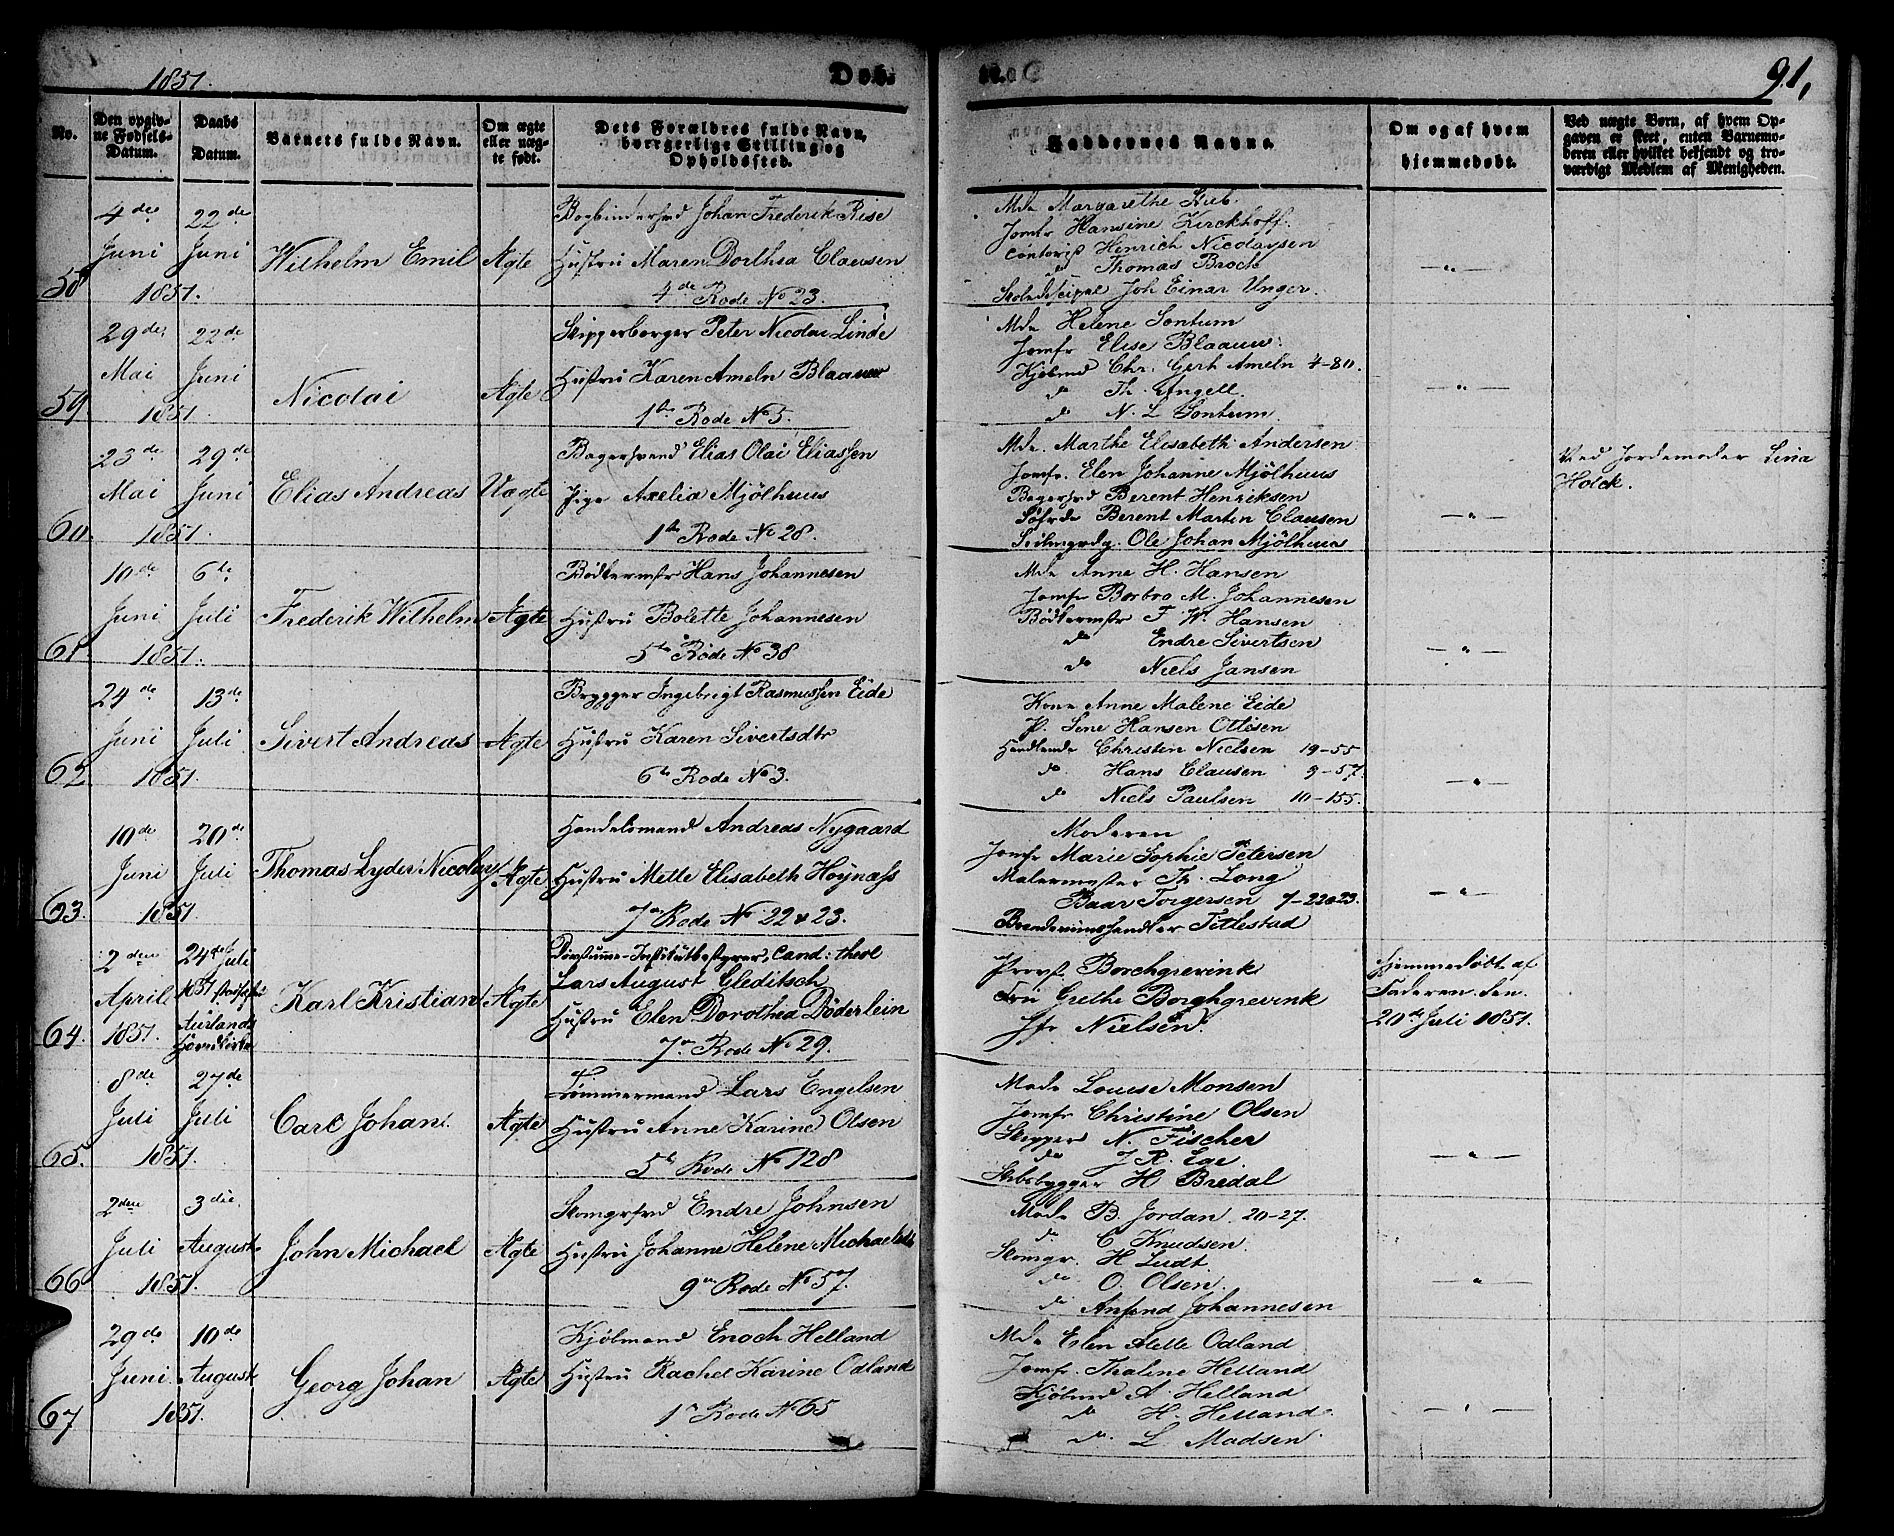 1851.
Døb.
91,
No.
Den opgiv-
ne Fødsels-
Datum.
Daabs
Datum.
Barnets fulde Navn.
Om ægte
eller uæg-
te født.
Dets Forældres fulde Navn,
borgerlige Stilling og
Opholdssted.
Faddernes Navne.
Om og af hvem
hjemmedøbt.
Ved uægte Børn, af hvem Op-
gaven er skeet, enten Barnemo-
deren eller hvilket bekjendt og tro-
værdigt Medlem af Menigheden.
58
4de
Juni
1851.
22de
Juni
Wilhelm Emil
Ægte
Bogbindersvd Johan Frederik Rise
Hustru Maren Dorthea Clausen
4de Rode No 23.
Mde Margarethe
Jomfr Hansine Kirckhoff.
Contorist Henrich Nicolaysen
do Thomas Brock
Skolediscipel Joh Einar Unger.
— " —
59
29de
Mai
1851.
22de
Juni
Nicolai
Ægte
Skipperborger Peter Nicolai Linde
Hustru Karen Ameln Blaauw
1ste Rode No 5.
Mde Helene Sontum
Jomfr Elise Blaauw.
Kjøbmd Chr. Gerh Ameln 4-80.
do Th. Angell.
do N. L. Sontum.
— " —
60.
23de
Mai
1851.
29de
Juni
Elias Andreas
Uægte
Bagersvend Elias Olai Eliassen
Pige Axelia Mjölhuus
1ste Rode No 28.
Mde. Marthe Elisabeth Andersen
Jomfr. Elen Johanne Mjölhuus
Bagersvd Berent Henriksen
Berent Martin Clausen
Ole Johan Mjölhuus
— " —
Ved Jordemoder Lina
Holck.
61
10de
Juni
1851.
6te
Juli
Frederik Wilhelm
Ægte
Bødkermstr Hans Johannesen
Hustru Bolette Johannesen
5te Rode No 38
Mde Anne H. Hansen
Jomfr Barbra M. Johannesen
Bødkermstr F. W. Hansen
do Endre Sivertsen
do Niels Jansen
— " —
62
24de
Juni
1851.
13de
Juli
Sivert Andreas
Ægte
Brygger Ingebrigt Rasmussen Eide
Hustru Karen Sivertsdtr
6te Rode No 3.
Kone Anne Malene Eide
P. Sine Hansen Ottesen
Handlende Christen Nielsen 19-55
do. Hans Clausen 9-57.
do Niels Paulsen 10-155.
"
63.
10de
Juni
1851.
20de
Juli
Thomas Lyder Nicolay
Ægte
Handelsmand Andreas Nygaard
Hustru Mette Elisabeth Höynæss
7de Rode No 22 & 23.
Moderen
Jomfr Marie Sophie Petersen
Malermester Th. Long
Baar Torgersen 7-22&23.
Brændeviinshandler Titlestad
— " —
64.
2den
April
1851.
24de Juli
1851 stadfæstet
Aurlands
Hovedkirke
Karl Kristian
Ægte
Døvstumme-Institutbestyrer, Cand: theol
Lars August Gleditsch
Hustru Elen Dorothea Döderlein
7de Rode No 29.
Provst Borchgrevink
Fru Grethe Borghgrevink
Jfr. Nielsen.
Hjemmedøbt af
Faderen den
20de Juli 1851.
65.
8de
Juli
1851.
27de
Juli
Carl Johan.
Ægte
Tømmermand Lars Engelsen
Hustru Anne Karine Olsen
5te Rode No 128
Made Louise Monsen
Jomfr Christine Olsen
Skipper N. Fischer
do J. R. Ege.
Skibsbygger H Bredal
— " —
66
2den
Juli
1851.
3die
August
John Michael
Ægte
Skomgrsvd Endre Johnsen
Hustru Johanne Helene Michaelsdtr
9de Rode No 57.
Made B. Jordan. 20-27.
do C. Knudsen.
Skomgr. H Ludt.
do O. Olsen.
do Anfend Johannesen
— " —
67
29de
Juni
1851.
10de
August
Georg Johan
Ægte
Kjøbmand Enoch Helland
Hustru Rachel Karine Odland
1ste Rode No 65
Mde Elen Alette Odland
Jomfr. Thaline Helland
Kjøbmd A. Helland
do H. Helland.
do. L. Madsen.
— " —